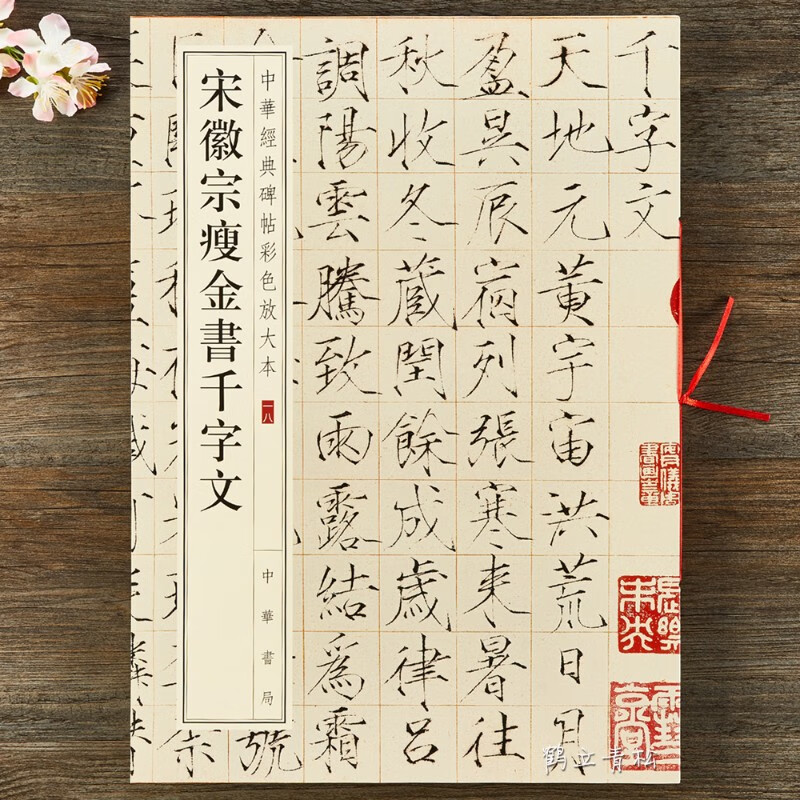 千字文
天地元黄宇宙洪荒日月
盈昃辰宿列張寒来暑往
秋收冬蔵閏餘成歳律吕
調陽雲騰致雨露結爲霜
號
中華經典碑帖彩色放大本 一八
中華書局
宋徽宗瘦金書千字文
鹤立青松